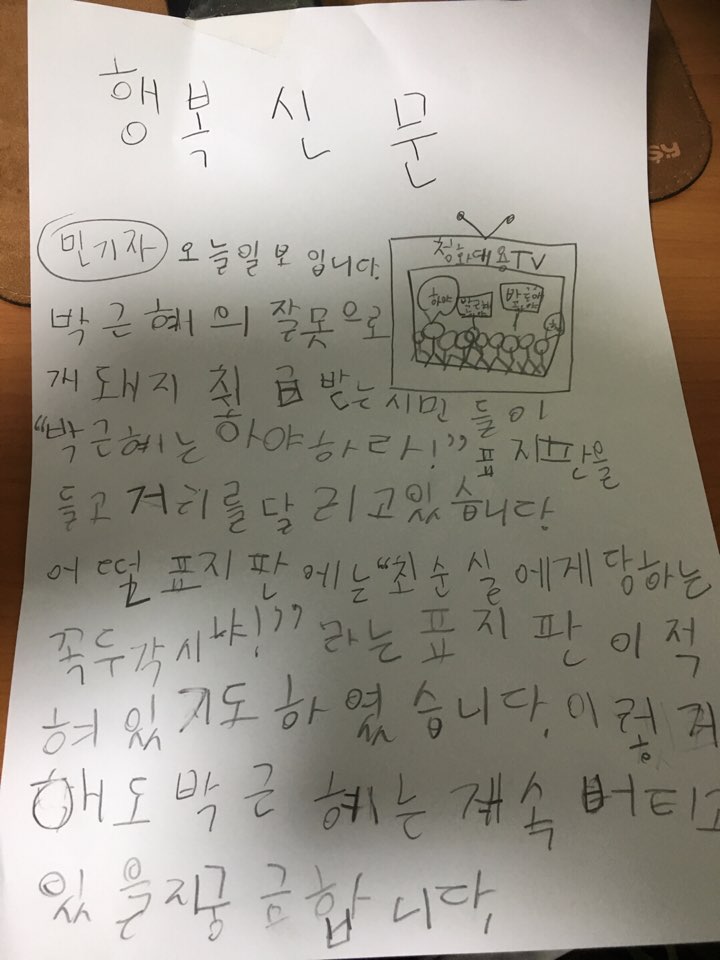 행복신문
민기자 오늘일보 입니다.
청와대용TV
하야
박근혜의 잘못으로
개돼지 취급 받는 시민 들이
"박근혜는 하야하라!" 표지판을
들고 거리를 달리고있습니다.
어떨 표지판에는 "최순실에게 당하는
꼭두각시야!" 라는 표지판이 적
혀 있지도 하였습니다. 이렇게
해도 박근혜는 계속 버티고
있을지 궁금합니다.